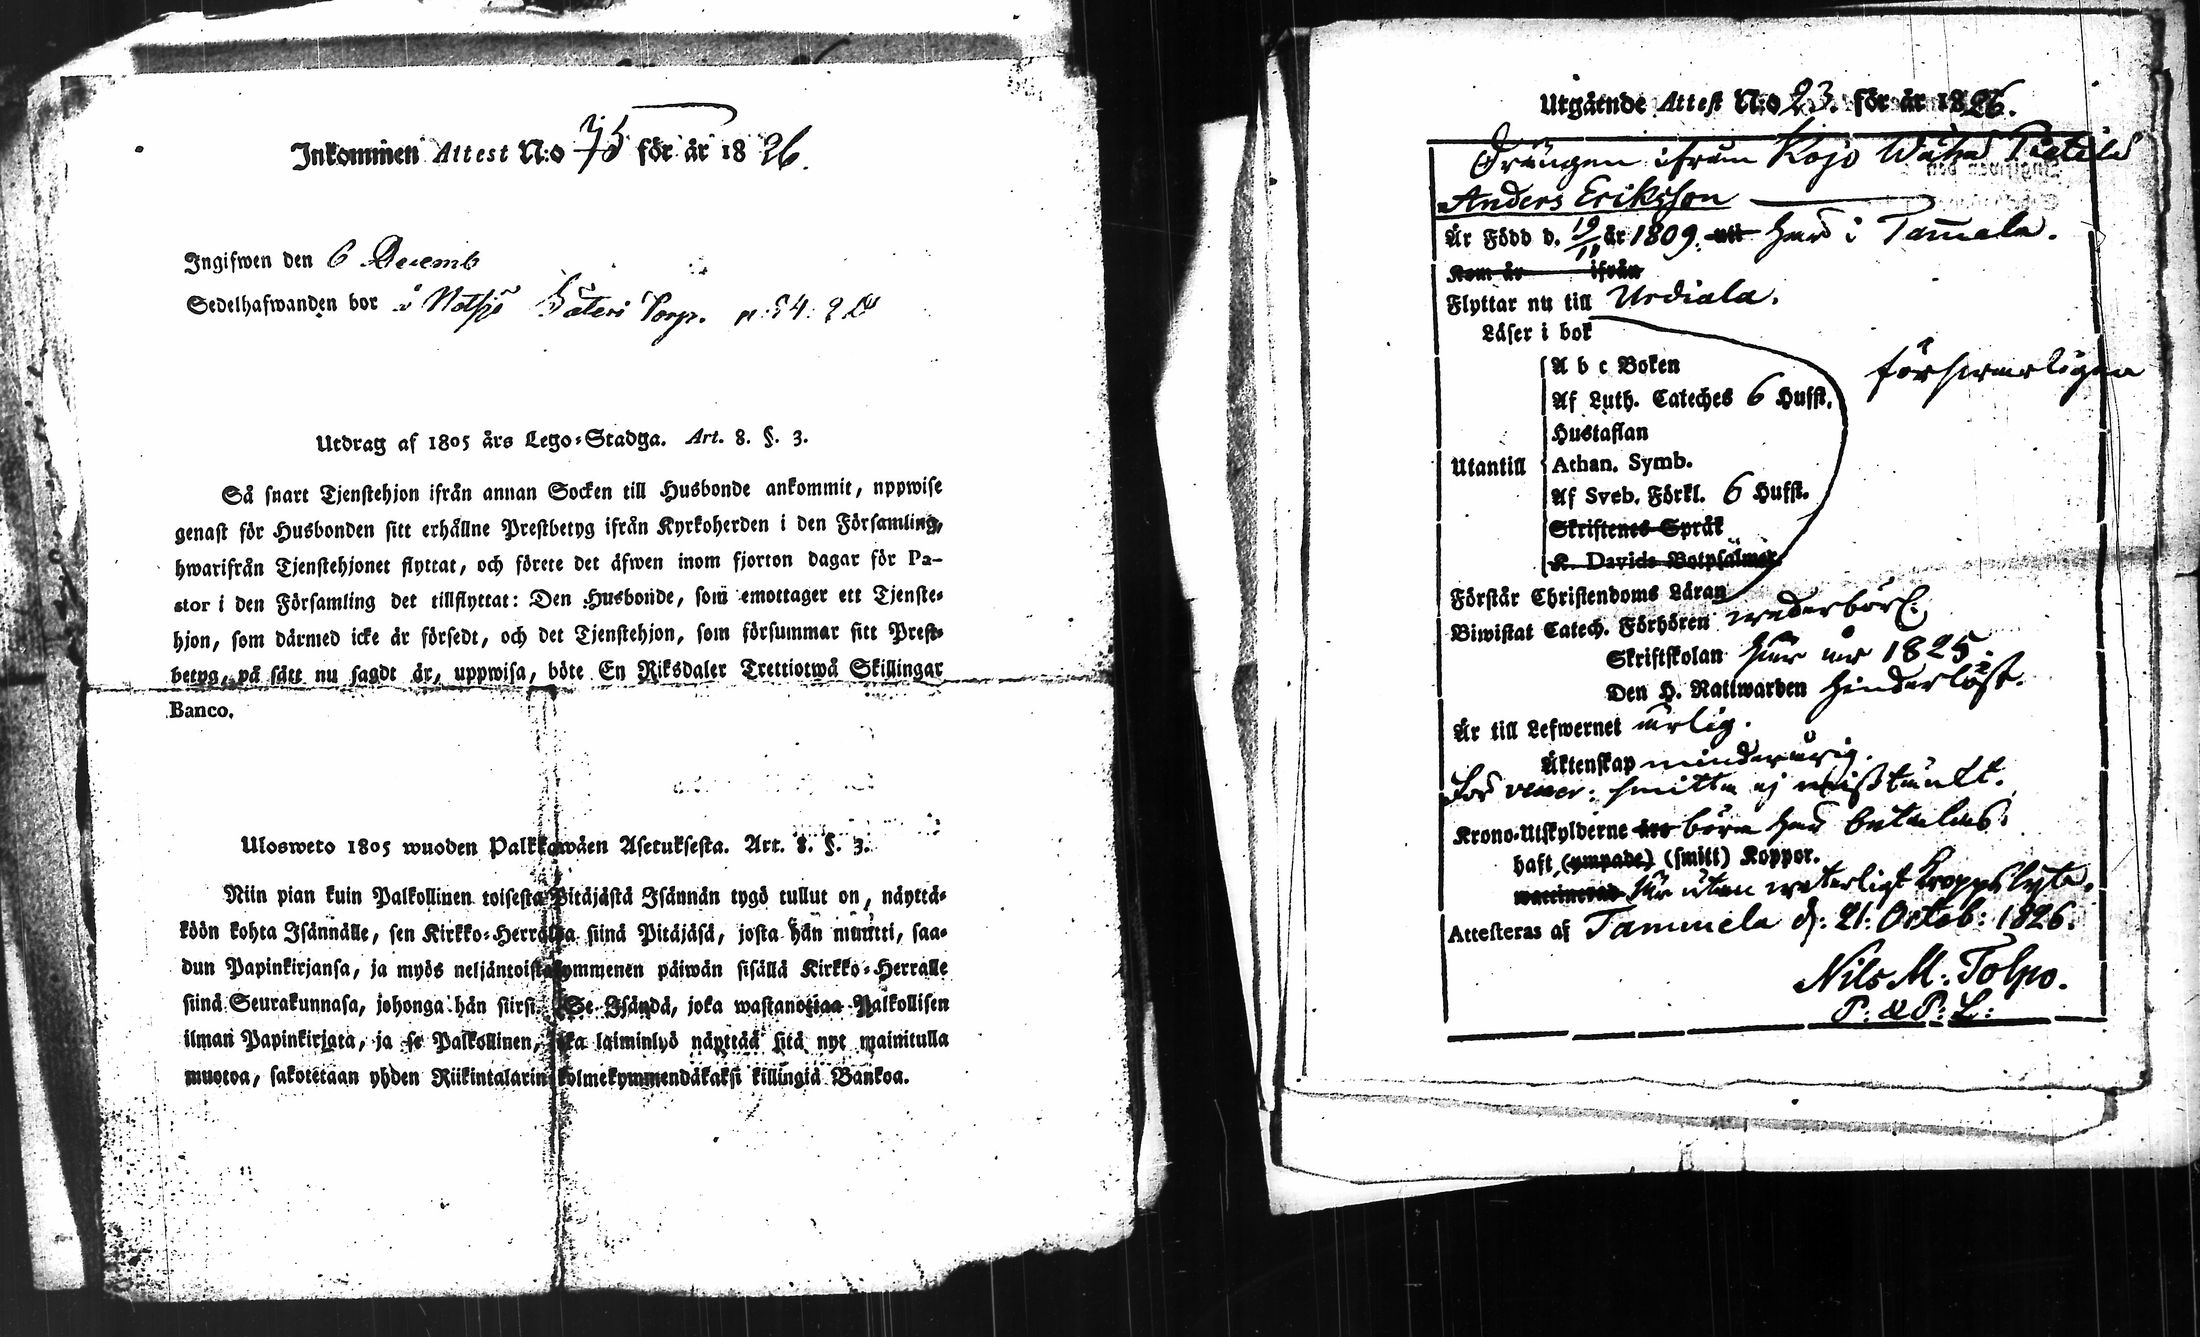 Inkommen Attest N:o 75 för år 1826.
Ingifwen den 6 Decemb
Sedelhafwanden bor å Notsjö Säteri Torp.
Utdrag af 1805 års Lego-Stadga. Art. 8. §. 3.
Så snart Tjenstehjon ifrån annan Socken till Husbonde ankommit, uppwise
genast för Husbonden sitt erhållne Prestbetyg ifrån Kyrkoherden i den Församling,
hwarifrån Tjenstehjonet flyttat, och förete det äfwen inom fjorton dagar för Pa-
stor i den Församling det tillflyttat: Den Husbonde, som emottager ett Tjenste-
hjon, som därmed icke är försedt, och det Tjenstehjon, som försummar sitt Prest-
betyg, på sätt nu sagdt är, uppwisa, böte En Riksdaler Trettiotwå Skillingar
Banco.
Ulosweto 1805 wuoden Palkkawäen Asetuksesta. Art. 8. §. 3.
Niin pian kuin Palkollinen toisesta Pitäjästä Isännän tygö tullut on, näyttä-
köön kohta Isännälle, sen Kirkko-Herralda siinä Pitäjäsä, josta hän muutti, saa-
dun Papinkirjansa, ja myös neljäntoistakymmenen päiwän sisällä Kirkko-Herralle
siinä Seurakunnasa, johonga hän siirsi. Se Isändä, joka wastanottaa Palkollisen
ilman Papinkirjata, ja se Palkollinen, joka laiminlyö näyttää sitä nyt mainitulla
muotoa, sakotetaan yhden Riikintalarin kolmekymmendäkaksi killingiä Bankoa.
Utgående Attest N:o 23. för år 1826.
Drängen ifrån Kojo Wähä Pietilä
Anders Eriksson
Är Född d. 19/11 år 1809. uti här i Tammela.
Kom år ifrån
Flyttar nu till Urdiala.
Läser i bok
A b c Boken
försvarligen
Af Luth. Cateches 6 Hufst.
Hustaflan
Utantill Athan. Symb.
Af Sveb. Förkl. 6 Hufst.
Skriftenes Språk
K. Davids Botpsalmer
Förstår Christendoms Läran
Biwistat Catech. Förhören wederbörl.
Skriftskolan här år 1825.
Den H. Nattwarden hinderlöst.
Är till Lefwernet ärlig.
Äktenskap minderårig.
För vener: smitta ej misstänkt.
Krono-Utskylderne äro böra här betalas.
haft (ympade) (smitt) Koppor.
waccinerad är utan weterligt kroppslyte.
Attesteras af Tammela d: 21: Octob: 1826.
Nils M. Tolpo.
P. & P: L: